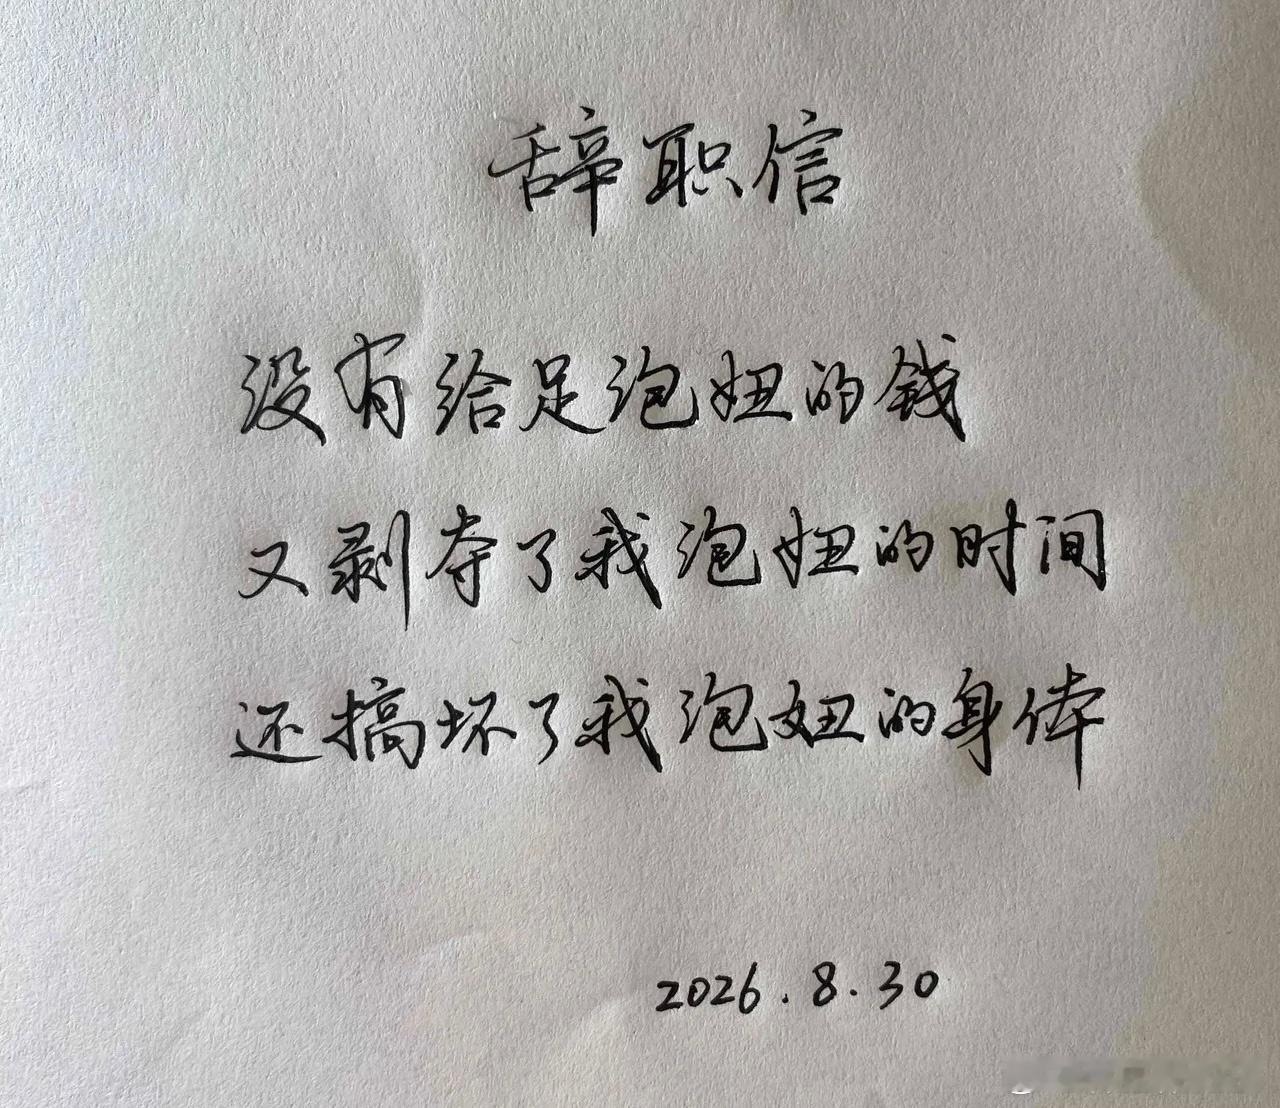 辞职信
没有给足泡妞的钱
又剥夺了我泡妞的时间
还搞坏了我泡妞的身体
2026.8.30